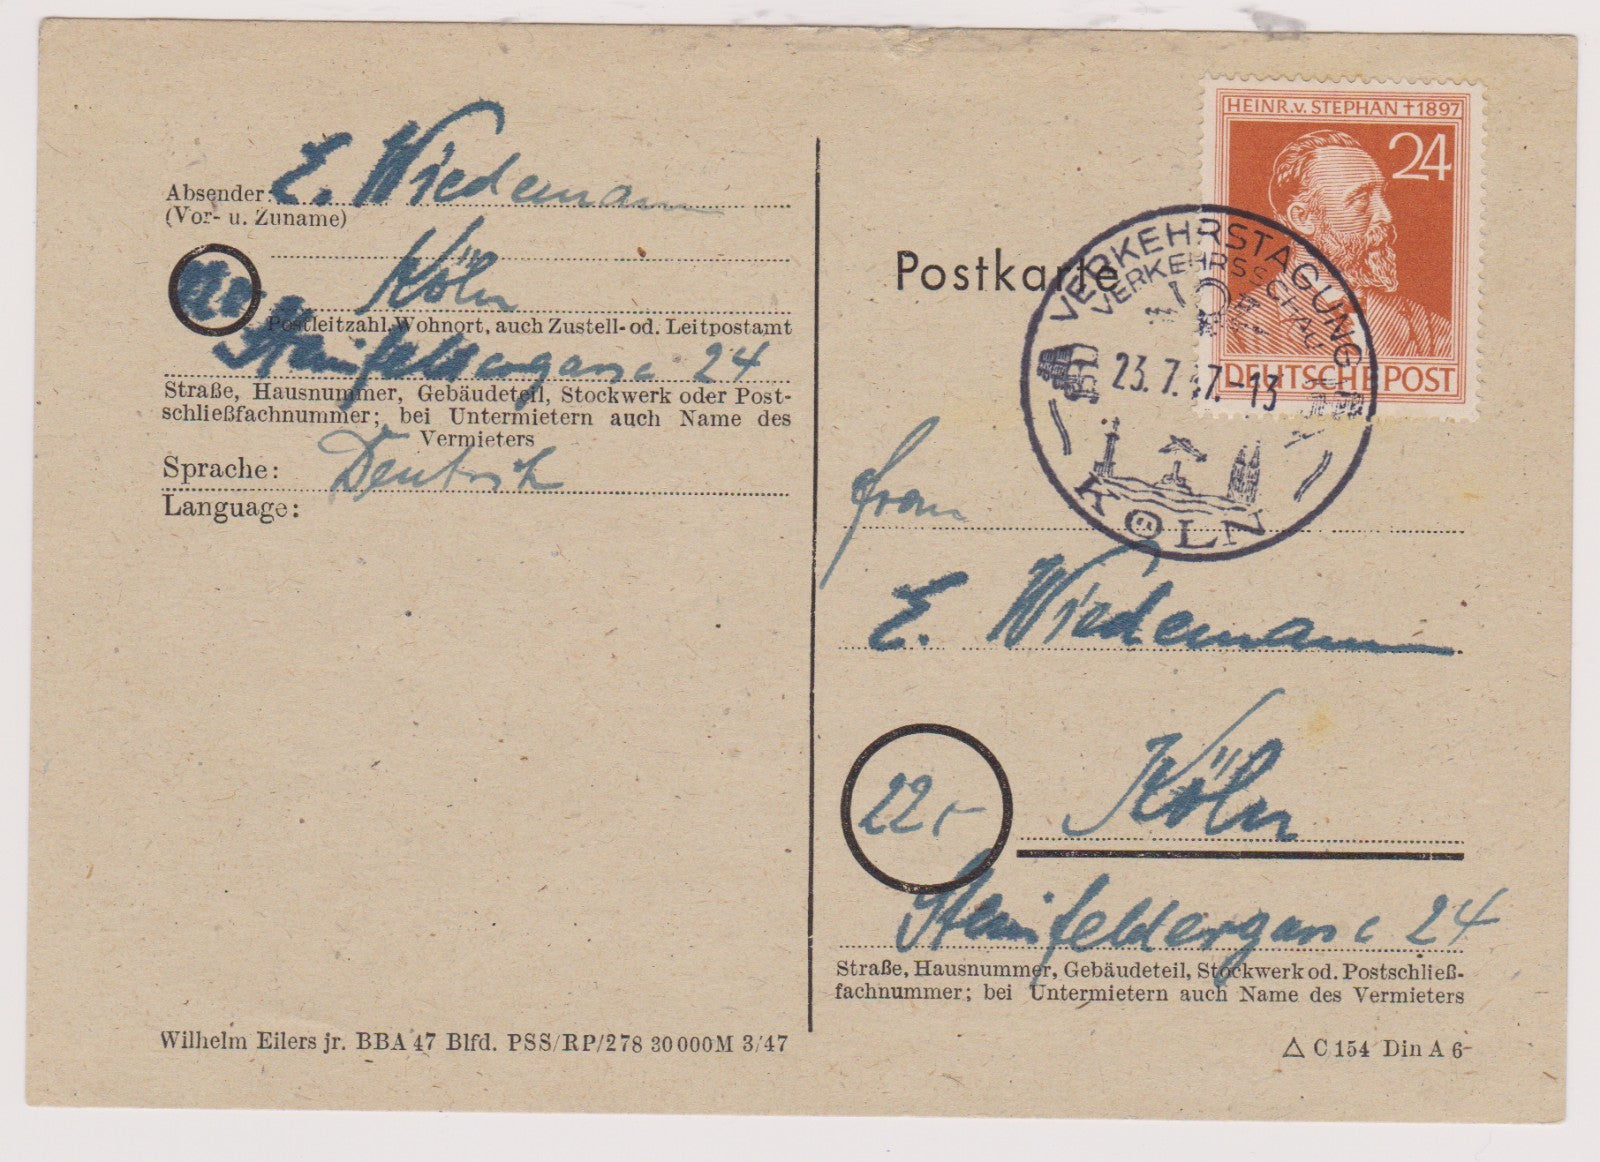 Absender: E. Wiedemann
(Vor- u. Zuname)
Köln
Postleitzahl, Wohnort, auch Zustell- od. Leitpostamt
Steinfeldergasse 24
Straße, Hausnummer, Gebäudeteil, Stockwerk oder Post-
schließfachnummer; bei Untermietern auch Name des
Vermieters
Sprache: Deutsch
Language:
Wilhelm Eilers jr. BBA 47 Blfd. PSS/RP/278 30000M 3/47
HEINR. v. STEPHAN † 1897
24
DEUTSCHE POST
Postkarte
VERKEHRSTAGUNG
VERKEHRSSCHAU
23.7.47.-13
KÖLN
Frau
E. Wiedemann
22c
Köln
Steinfeldergasse 24
Straße, Hausnummer, Gebäudeteil, Stockwerk od. Postschließ-
fachnummer; bei Untermietern auch Name des Vermieters
△ C 154 Din A 6